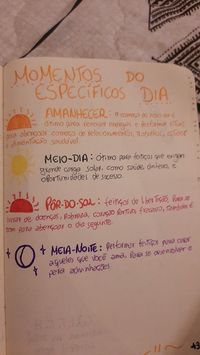 MOMENTOS DO
ESPECÍFICOS DIA
AMANHECER: O começo do novo dia é
ótimo para renovar energias e performar rituais
para abençoar começo de relacionamentos, trabalhos, estudos
e alimentação saudável.
MEIO-DIA: Ótimo para feitiços que exigem
grande carga solar. Como saúde, dinheiro, e
oportunidades de sucesso.
PÔR-DO-SOL: feitiços de libertação. Para se
livrar de doenças, rotina, coração partido, fracasso, também é
bom para abençoar o dia seguinte.
MEIA-NOITE: Performar feitiços para curar
aqueles que você ama. Para se desenvolver e
para adivinhações.
43